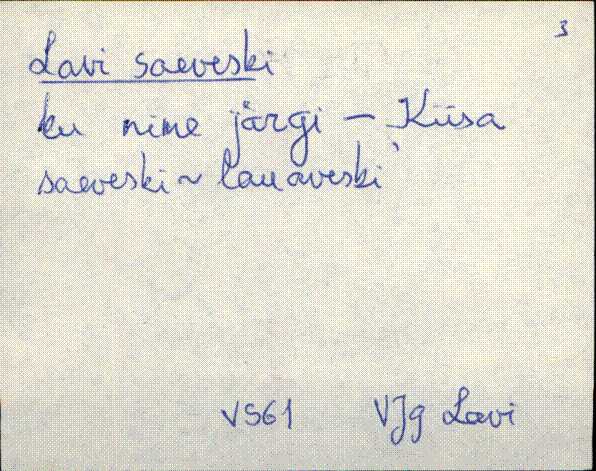 3
Lavi saeveski
ku nime järgi – Kiisa
saeveski ~ lauaveski
VS61 VJg Lavi